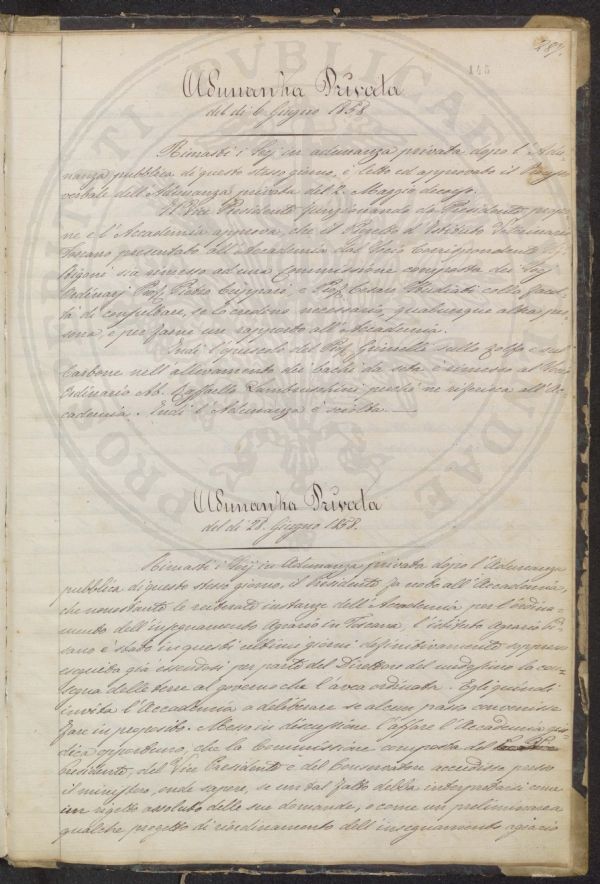 287.
145
Adunanza Privata
del dì 6 Giugno 1858
Rimasti i Sigg. in adunanza privata dopo l'Adu-
nanza pubblica di questo stesso giorno, è letto ed approvato il Proces.
verbale dell'Adunanza privata del 2 Maggio decorso.
Il Vice Presidente funzionando da Presidente propo-
ne e l'Accademia approva, che il Progetto d'Istituto Veterinario
Toscano presentato all'Accademia dal Socio Corrispondente
sia rimesso ad una Commissione composta dei Sigg.
Ordinarj Prof. Pietro Cuppari, e Prof. Cesare Studiati colle facol-
tà di consultare, se lo credono necessario, qualunque altra per-
sona, e per farne un rapporto all'Accademia.
Indi l'opuscolo del Prof. Grimelli sullo Zolfo e sul
Carbone nell'allevamento dei bachi da seta è rimesso al Socio
Ordinario Ab. Raffaello Lambruschini perchè ne riferisca all'Ac-
cademia. Indi l'Adunanza è sciolta.
Adunanza Privata
del dì 28. Giugno 1858.
Rimasti i Sigg. in Adunanza privata dopo l'Adunanza
pubblica di questo stesso giorno, il Presidente fa noto all'Accademia,
che nonostante le reiterate instanze dell'Accademia per l'ordina-
mento dell'insegnamento Agrario in Toscana l'istituto agrario Pi-
sano è stato in questi ultimi giorni definitivamente soppresso
eseguita già essendosi per parte del Direttore del medesimo la con-
segna delle terre al governo che l'avea ordinata. Egli quindi
invita l'Accademia a deliberare se alcun passo convenisse
fare in proposito. Messo in discussione l'affare l'Accademia giu-
dica opportuno, che la Commissione composta del
Presidente, del Vice Presidente e del Conservatore accedesse presso
il ministero, onde sapere, se un tal fatto debba interpretarsi come
un rigetto assoluto delle sue domande, o come un preliminare a
qualche progetto di riordinamento dell'insegnamento agrario
PROSPERITATI PUBLICAE AUGENDAE